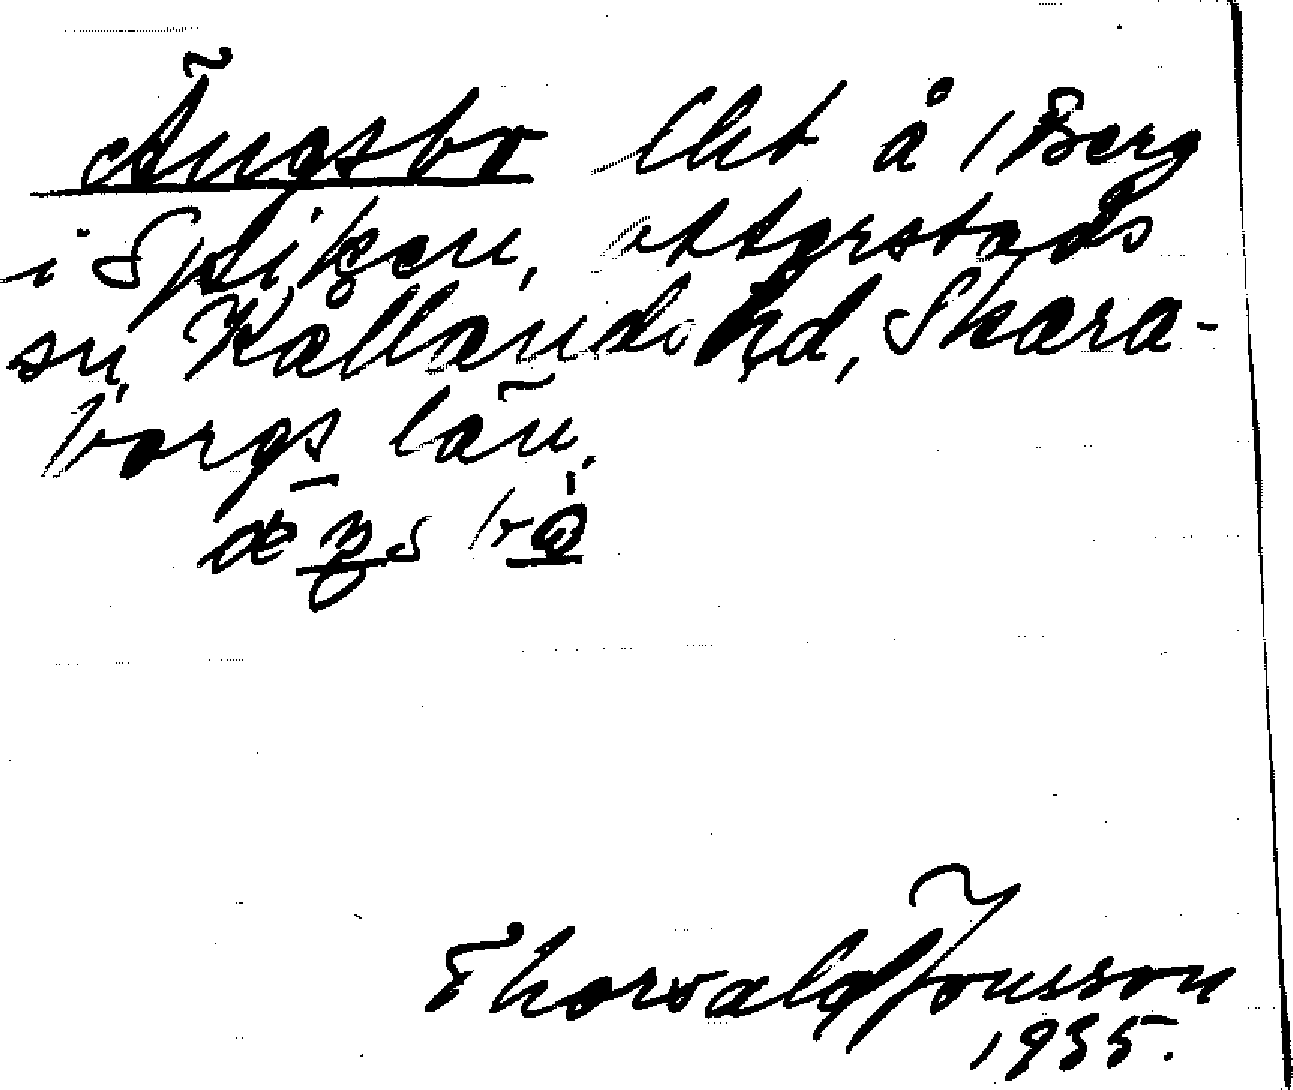 Ängsbo lht å 1 Berg
i Spiken, Otterstads
sn, Kållands hd, Skara-
borgs län.
Thorvald Jonsson
1935.